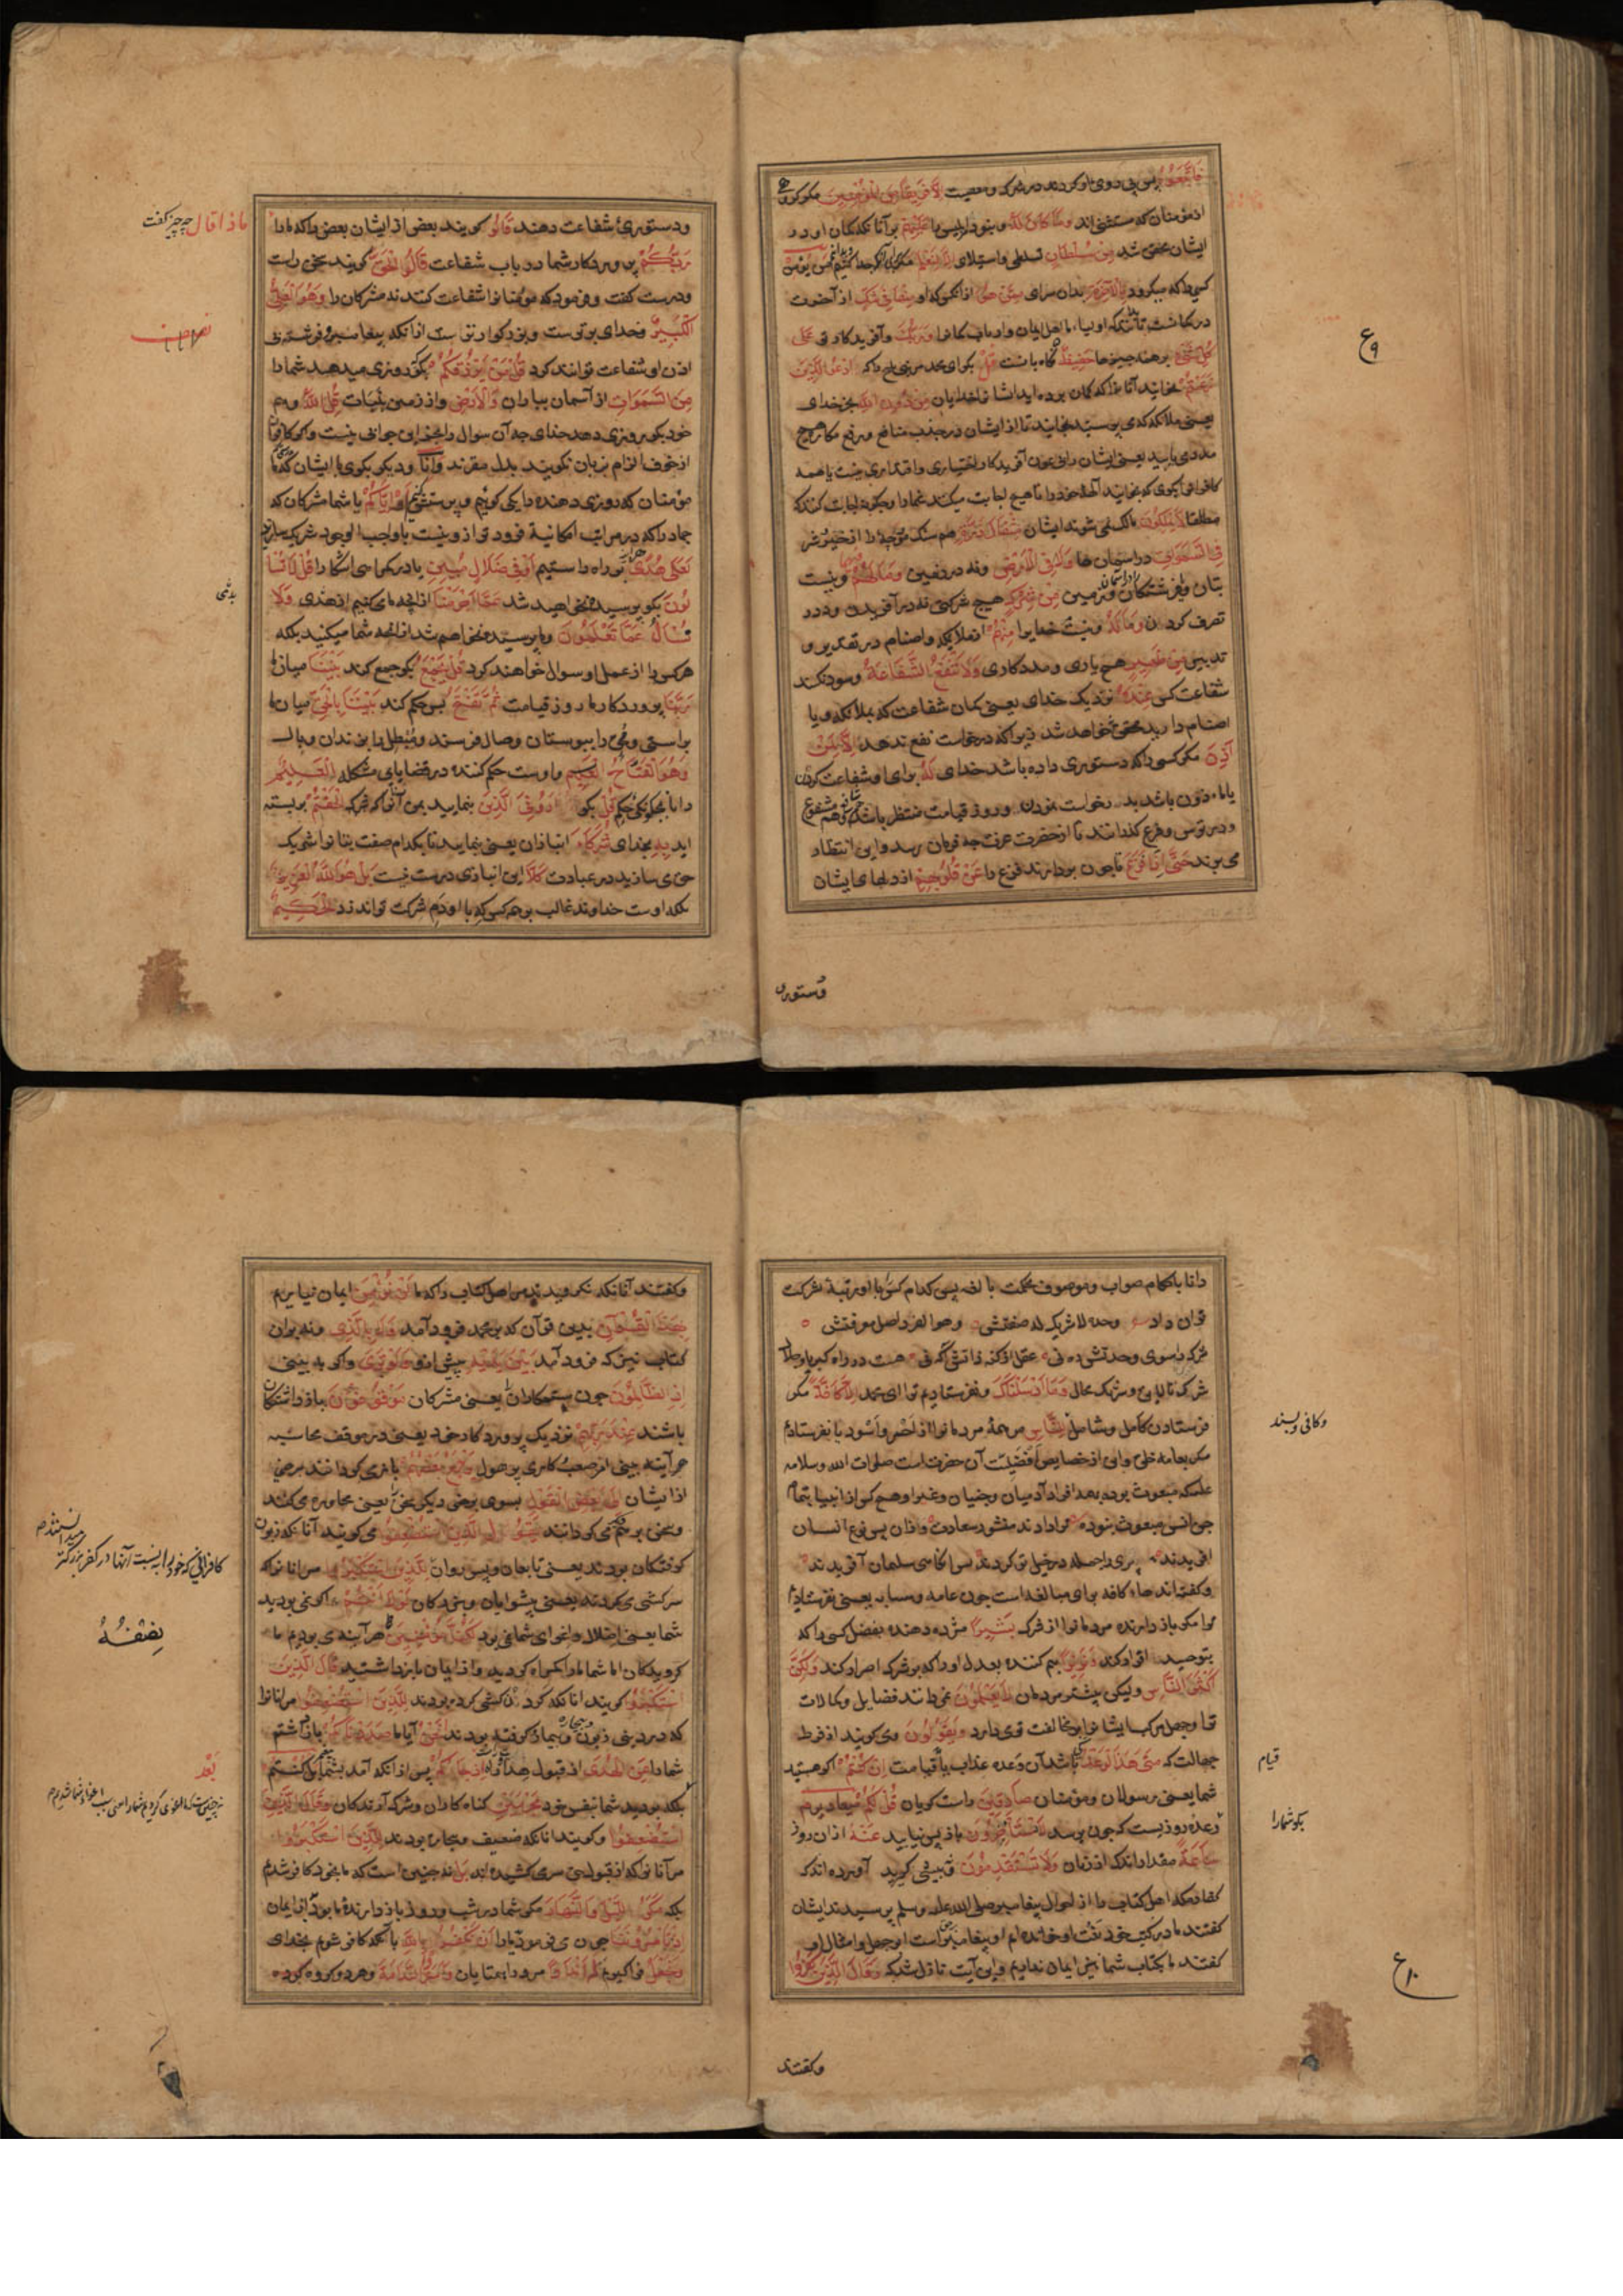 فَاتَّبَعُوهُ پس پی روی او کردند در شرک و معصیت إِلَّا فَرِيقًا مِنَ الْمُؤْمِنِينَ مگر گروهی
از مؤمنان که مستثنی اند وَمَا كَانَ لَهُ و نبود ابلیس را عَلَيْهِمْ بر آنانکه گمان او در
ایشان محقق شد مِنْ سُلْطَانٍ تسلطی و استیلای إِلَّا لِنَعْلَمَ مگر برای آنکه جدا کنیم
کسی را که میگرود بِالْآخِرَةِ بدان سرای مِمَّنْ هُوَ از آنکس که او مِنْهَا فِي شَكٍّ از آخرت
در گمانست وَرَبُّكَ و آفریدگار تو عَلَى
كُلِّ شَيْءٍ بر همه چیزها حَفِيظٌ نگاه بانست قُلْ بگو ای محمد ادْعُوا الَّذِينَ
زَعَمْتُمْ بخوانید آنانرا که گمان برده اید ایشانرا خدایان مِنْ دُونِ اللَّهِ بجز خدای
یعنی ملائکه که می پرستید بخوانید تا از ایشان در جذب منافع و رفع مکاره هیچ
مددی یابید یعنی ایشان را بی عون آفریدگار اختیاری و اقتداری نیست
مطلقا لَا يَمْلِكُونَ مالک نمی شوند ایشان مِثْقَالَ ذَرَّةٍ هم سنگ مورچه را از خیر و شر
فِي السَّمَاوَاتِ در آسمان ها وَلَا فِي الْأَرْضِ و نه در زمین وَمَا لَهُمْ و نیست
بتان و فرشتگان مِنْ شِرْكٍ هیچ شرکتی نه در آفریدن و نه در
تصرف کردن وَمَا لَهُ و نیست خدایرا مِنْهُمْ از ملائکه و اصنام در تقدیر و
تدبیر مِنْ ظَهِيرٍ هیچ یاری و مددکاری وَلَا تَنْفَعُ الشَّفَاعَةُ و سود نکند
شفاعت کس عِنْدَهُ نزدیک خدای یعنی گمان شفاعت که بملائکه و یا
اصنام دارید محقق نخواهد شد زیرا که درخواست نفع ندهد إِلَّا لِمَنْ
أَذِنَ مگر کسی را که دستوری داده باشد خدای لَهُ برای او شفاعت کردن
یا ماذون باشد بدرخواست نمودن و روز قیامت منتظر باشند
و در ترس و فزع گذرانند تا از حضرت عزت چه فرمان رسد و این انتظار
می برند حَتَّى إِذَا فُزِّعَ تا چون بردارند فزع را عَنْ قُلُوبِهِمْ از دلهای ایشان
ع ۹
دستوری
و دستوری شفاعت دهند قَالُوا گویند بعضی از ایشان بعضی را که
ماذا قال چه چیز گفت
رَبُّكُمْ پروردگار شما در باب شفاعت قَالُوا الْحَقَّ گویند سخن راست
و درست گفت و فرمود که مؤمنانرا شفاعت کنند نه مشرکان را وَهُوَ الْعَلِيُّ
الْكَبِيرُ و خدای برترست و بزرگوارترست از آنکه پیغامبر و فرشته بی
اذن او شفاعت توانند کرد قُلْ مَنْ يَرْزُقُكُمْ بگو که روزی میدهد شما را
مِنَ السَّمَاوَاتِ از آسمان بباران وَالْأَرْضِ و از زمین بنبات قُلِ اللَّهُ و هم
خود بگو روزی دهد خدای چه آن سوال را بجز این جوابی نیست و اگر کافران
از خوف الزام بزبان نگویند بدل مقرند وَإِنَّا و دیگر بگوی با ایشان که ما
مؤمنان که روزی دهنده را یکی گوئیم و پرستش کنیم أَوْ إِيَّاكُمْ یا شما مشرکان که
جماد را که در مراتب امکانیة فروتر از و نیست با واجب الوجود شریک سازید
لَعَلَى هُدًى بر راه راستیم أَوْ فِي ضَلَالٍ مُبِينٍ یا در گمراهی آشکارا قُلْ لَا تُسْأَ
لُونَ بگو پرسیده نخواهید شد عَمَّا أَجْرَمْنَا از آنچه ما می کنیم وَلَا
نُسْأَلُ عَمَّا تَعْمَلُونَ و ما پرسیده نخواهیم شد از آنچه شما میکنید بلکه
هر کس را از عمل او سوال خواهند کرد قُلْ يَجْمَعُ بگو جمع کند بَيْنَنَا میان ما
رَبُّنَا پروردگار ما روز قیامت ثُمَّ يَفْتَحُ پس حکم کند بَيْنَنَا بِالْحَقِّ میان ما
براستی و محق را ببوستان وصال فرستد و مبطل را بزندان وبال
وَهُوَ الْفَتَّاحُ الْعَلِيمُ و اوست حکم کننده در قضایای مشکله الْعَلِيمُ
دانا بچگونگی حکم قُلْ بگو أَرُونِيَ الَّذِينَ بنمایید بمن آنانرا که أَلْحَقْتُمْ بربسته
اید بِهِ بخدای شُرَكَاءَ انبازان یعنی بنمایید تا بکدام صفت بتانرا شریک
حق می سازید در عبادت كَلَّا این انبازی درست نیست بَلْ هُوَ اللَّهُ الْعَزِيزُ
بلکه اوست خداوند غالب بر هر کس که با او دم شرکت تواند زد الْحَكِيمُ
دانا باحکام صواب و موصوف بحکمت بالغه پس کدام کس را با او رتبۀ شرکت
توان داد وحده لا شریک له صفتش وهو الفرد اصل معرفتش
شرک را سوی وحدتش ره نی عقل از کنه ذاتش آگه نی هست در راه کبریا و جلال
شرک نالایق و شریک محال وَمَا أَرْسَلْنَاكَ و نفرستادیم ترا ای محمد إِلَّا كَافَّةً مگر
فرستادن کامل و شامل لِلنَّاسِ مر همۀ مردمانرا از احمر و اسود یا نفرستاده
وکافی و بسند
مگر بعامه خلق و این از خصایص و فضیلت آن حضرتست صلوات الله و سلامه
علیه که مبعوث بوده بهمه افراد آدمیان و جنیان و غیر او هیچ کس از انبیا بتمام
جن و انس مبعوث نبوده
و گفته اند هاء کافه برای مبالغه است چون علامه
ترا مگر بازدارنده مردمانرا از شرک بَشِيرًا مژده دهنده بفضل کسی را که
بتوحید اقرار کند وَنَذِيرًا بیم کننده بعدل او را که بر شرک اصرار کند وَلَكِنَّ
أَكْثَرَ النَّاسِ ولیکن بیشتر مردمان لَا يَعْلَمُونَ نمی دانند فضایل و کمالات
ترا و جهل مرکب ایشانرا بر مخالفت تو می دارد وَيَقُولُونَ و می گویند از فرط
جهالت که مَتَى هَذَا الْوَعْدُ کی باشد آن وعده عذاب یا قیامت إِنْ كُنْتُمْ اگر هستید
قیام
شما یعنی رسولان و مؤمنان صَادِقِينَ راست گویان قُلْ لَكُمْ مِيعَادُ يَوْمٍ
بگو شما را
وعده روزیست که چون برسد لَا تَسْتَأْخِرُونَ باز پس نیایید عَنْهُ از آن روز
سَاعَةً مقدار اندک از زمان وَلَا تَسْتَقْدِمُونَ و پیشی گیرید آورده اند که
کفار مکه اهل کتاب را از احوال پیغامبر صلی الله علیه وسلم پرسیدند ایشان
گفتند ما در کتب خود نعت او خوانده ایم و او پیغامبر برحق است ابوجهل و امثال او
گفتند ما بکتاب شما نیز ایمان نداریم و این آیت نازل شد که وَقَالَ الَّذِينَ كَفَرُوا
ع ۱۰
و گفتند
و گفتند آنانکه نگرویدند مر اهل کتاب را که ما لَنْ نُؤْمِنَ ایمان نیاریم
بِهَذَا الْقُرْآنِ بدین قرآن که بر محمد فرود آمد وَلَا بِالَّذِي و نه بران
کتاب نیز که فرود آمد بَيْنَ يَدَيْهِ پیش ازو وَلَوْ تَرَى و اگر به بینی
إِذِ الظَّالِمُونَ چون ستمکاران یعنی مشرکان مَوْقُوفُونَ بازداشتگان
باشند عِنْدَ رَبِّهِمْ نزدیک پروردگار خود یعنی در موقف محاسبه
هر آینه بینی امر صعب و کاری پر هول يَرْجِعُ بَعْضُهُمْ بازمی گردانند برخی
از ایشان إِلَى بَعْضٍ الْقَوْلَ بسوی برخی دیگر سخن یعنی محاوره می کنند
و سخن بر هم می گردانند يَقُولُ الَّذِينَ اسْتُضْعِفُوا می گویند آنانکه زبون
گرفتگان بودند یعنی تابعان و پس روان لِلَّذِينَ اسْتَكْبَرُوا مر آنانرا که
سرکشی می کردند یعنی پیشوایان و بزرگان لَوْلَا أَنْتُمْ اگر نمی بودید
نصفه
شما یعنی اضلال و اغوای شما نمی بود لَكُنَّا مُؤْمِنِينَ هر آینه می بودیم ما
گرویدگان اما شما ما را گمراه کردید و از ایمان باز داشتید قَالَ الَّذِينَ
اسْتَكْبَرُوا گویند آنانکه گردن کشی کرده بودند لِلَّذِينَ اسْتُضْعِفُوا مر آنانرا
که در دنیا زبون و بیچاره گرفته بودند أَنَحْنُ آیا ما صَدَدْنَاكُمْ باز داشتیم
شما را عَنِ الْهُدَى از قبول هدا إِذْ جَاءَكُمْ پس از آنکه آمد بشما بَلْ كُنْتُمْ
بَعْدَ
بلکه بودید شما بنفس خود مُجْرِمِينَ گناه کاران و شرک آرندگان وَقَالَ الَّذِينَ
اسْتُضْعِفُوا و گویند آنانکه ضعیف و بیچاره بودند لِلَّذِينَ اسْتَكْبَرُوا
مر آنانرا که از قبول حق سر می کشیده اند بَلْ نه چنین است که ما بخود کافر شدیم
بلکه مَكْرُ اللَّيْلِ وَالنَّهَارِ مکر شما در شب و روز بازدارندۀ ما بود از ایمان
إِذْ تَأْمُرُونَنَا چون می فرمودید ما را أَنْ نَكْفُرَ بِاللَّهِ بآنکه کافر شویم بخدای
وَنَجْعَلَ و فراگیریم لَهُ أَنْدَادًا مر او را همتایان وَأَسَرُّوا النَّدَامَةَ و هر دو گروه کرده